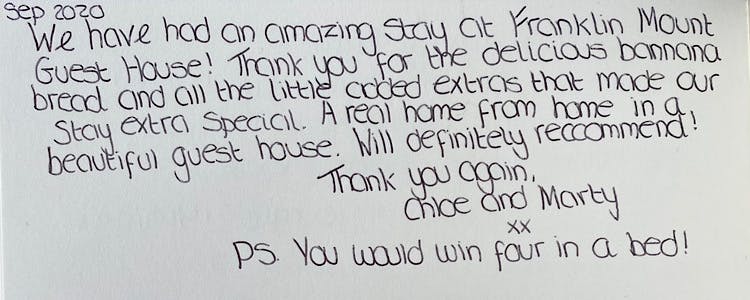 Sep 2020
We have had an amazing stay at Franklin Mount
Guest House! Thank you for the delicious bannana
bread and all the little added extras that made our
stay extra special. A real home from home in a
beautiful guest house. Will definitely reccommend!
Thank you again,
Chloe and Marty
xx
PS. You would win four in a bed!